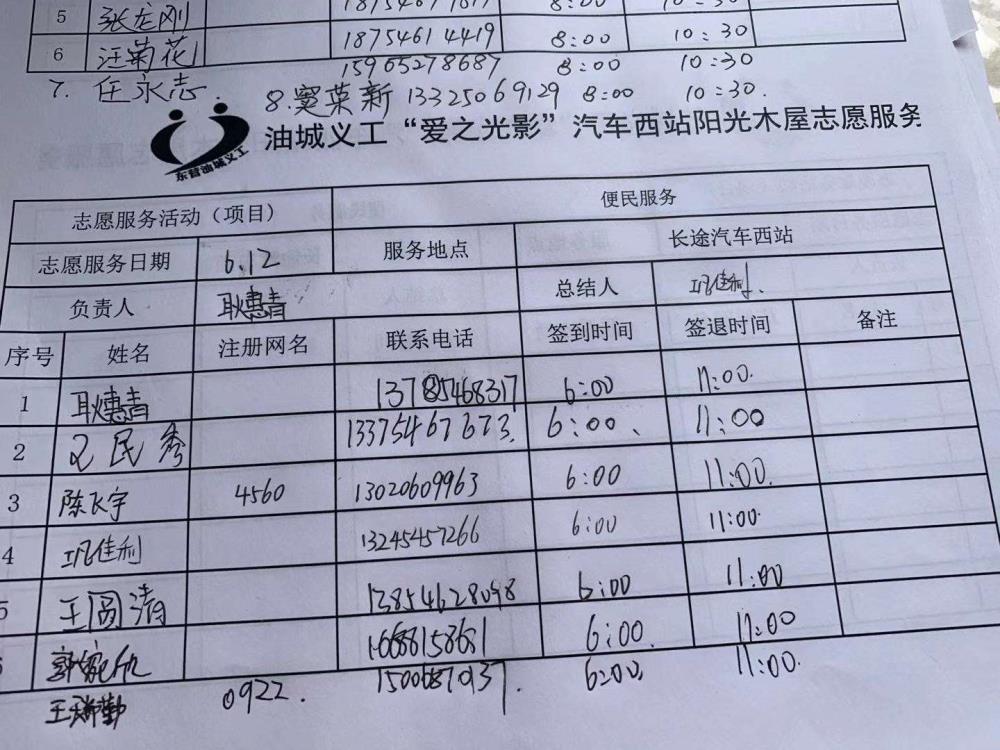 5 张龙刚 8:00 10:30
6 汪菊花 18754614419 8:00 10:30
7. 任永志. 15965278687 8:00 10:30
8. 窦荣新 13325069129 8:00 10:30.
东营油城义工
油城义工“爱之光影”汽车西站阳光木屋志愿服务
志愿服务活动（项目） 便民服务
志愿服务日期 6.12 服务地点 长途汽车西站
负责人 耿惠青 总结人 巩佳利.
序号 姓名 注册网名 联系电话 签到时间 签退时间 备注
1 耿惠青 13785468317 6:00 11:00.
2 民秀 13375467673. 6:00、 11:00
3 陈长宇 4560 13020609963 6:00 11:00.
4 巩佳利 13245457266 6:00 11:00.
5 王圆清 13854628098 6:00 11:00
6 16688158681 6:00. 11:00
王瑞勤 0922. 15006871037. 6:00, 11:00.